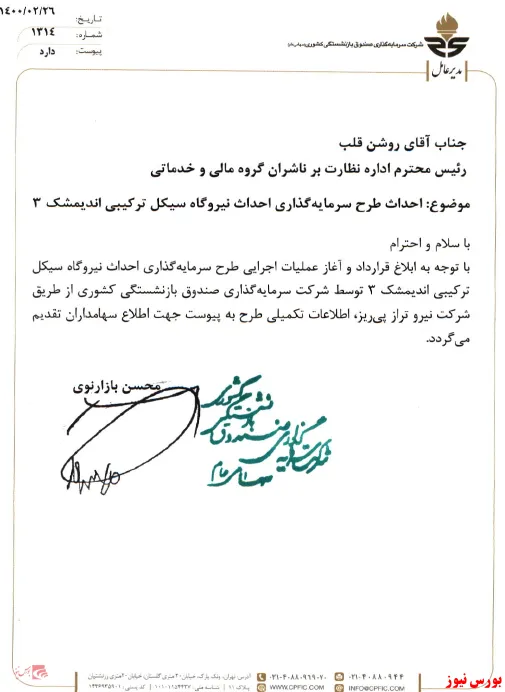 تاریخ: ۱۴۰۰/۰۲/۲۶
شماره: ۱۳۱۴
پیوست: دارد
شرکت سرمایه‌گذاری صندوق بازنشستگی کشوری (سهامی عام)
مدیرعامل
جناب آقای روشن قلب
رئیس محترم اداره نظارت بر ناشران گروه مالی و خدماتی
موضوع: احداث طرح سرمایه‌گذاری احداث نیروگاه سیکل ترکیبی اندیمشک ۳
با سلام و احترام
با توجه به ابلاغ قرارداد و آغاز عملیات اجرایی طرح سرمایه‌گذاری احداث نیروگاه سیکل
ترکیبی اندیمشک ۳ توسط شرکت سرمایه‌گذاری صندوق بازنشستگی کشوری از طریق
شرکت نیرو تراز پی‌ریز، اطلاعات تکمیلی طرح به پیوست جهت اطلاع سهامداران تقدیم
می‌گردد.
محسن بازارنوی
شرکت سرمایه گذاری صندوق بازنشستگی کشوری
سهامی عام
۰۲۱-۴۰۸۸۰۹۴۴
۰۲۱-۴۰۸۸۰۹۶۹-۷۰
INFO@CPFIC.COM
WWW.CPFIC.COM
بورس نیوز